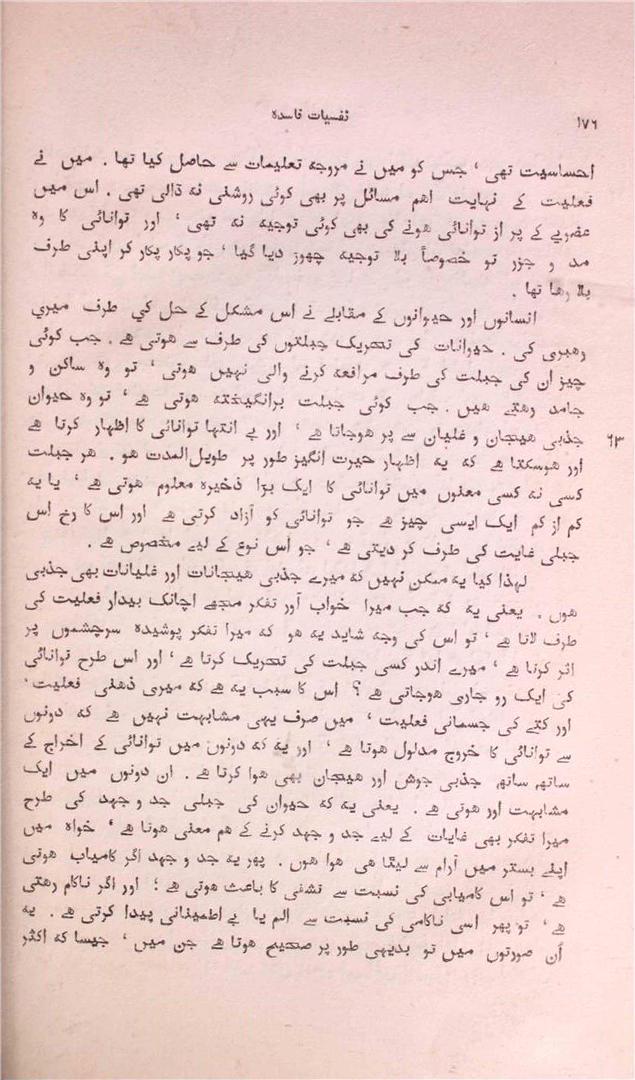 ۱۷۶
نفسیات فاسدہ
احساسیت تھی ‘ جس کو میں نے مروجہ تعلیمات سے حاصل کیا تھا . میں نے
فعلیت کے نہایت اھم مسائل پر بھی کوئی روشنی نہ ڈالی تھی . اس میں
عضویے کے پر از توانائی ھونے کی بھی کوئی توجیہ نہ تھی ‘ اور توانائی کا وہ
مد و جزر تو خصوصاً بلا توجیہ چھوڑ دیا گیا ‘ جو پکار پکار کر اپنی طرف
بلا رھا تھا .
انسانوں اور حیوانوں کے مقابلے نے اس مشکل کے حل کي طرف میري
رھبری کی . حیوانات کی تحریک جبلتوں کی طرف سے ھوتی ھے . جب کوئی
چیز ان کی جبلت کی طرف مرافعہ کرنے والی نہیں ھوتی ‘ تو وہ ساکن و
جامد رھتے ھیں . جب کوئی جبلت برانگیختہ ھوتی ھے ‘ تو وہ حیوان
جذبی ھیجان و غلیان سے پر ھوجاتا ھے ‘ اور بے انتہا توانائی کا اظہار کرتا ھے
۶۳
اور ھوسکتا ھے کہ یہ اظہار حیرت انگیز طور پر طویل‌المدت ھو . ھر جبلت
کسی نہ کسی معنوں میں توانائی کا ایک بڑا ذخیرہ معلوم ھوتی ھے ‘ یا یہ
کم از کم ایک ایسی چیز ھے جو توانائی کو آزاد کرتی ھے اور اس کا رخ اس
جبلی غایت کی طرف کر دیتی ھے ‘ جو اس نوع کے لیے مخصوص ھے .
لہذا کیا یہ ممکن نہیں کہ میرے جذبی ھیجانات اور غلیانات بھی جذبی
ھوں . یعنی یہ کہ جب میرا خواب آور تفکر مجھے اچانک بیدار فعلیت کی
طرف لاتا ھے ‘ تو اس کی وجہ شاید یہ ھو کہ میرا تفکر پوشیدہ سرچشموں پر
اثر کرتا ھے ‘ میرے اندر کسی جبلت کی تحریک کرتا ھے ‘ اور اس طرح توانائی
کی ایک رو جاری ھوجاتی ھے ؟ اس کا سبب یہ ھے کہ میری ذھنی فعلیت ‘
اور کتے کی جسمانی فعلیت ‘ میں صرف یہی مشابہت نہیں ھے کہ دونوں
سے توانائی کا خروج مدلول ھوتا ھے ‘ اور یہ کہ دونوں میں توانائی کے اخراج کے
ساتھ ساتھ جذبی جوش اور ھیجان بھی ھوا کرتا ھے . ان دونوں میں ایک
مشابہت اور ھوتی ھے . یعنی یہ کہ حیوان کی جبلی جد و جہد کی طرح
میرا تفکر بھی غایات کے لیے جد و جہد کرنے کے ھم معنی ھوتا ھے ‘ خواہ میں
اپنے بستر میں آرام سے لیٹا ھی ھوا ھوں . پھر یہ جد و جہد اگر کامیاب ھوتی
ھے ‘ تو اس کامیابی کی نسبت سے تشفی کا باعث ھوتی ھے ؛ اور اگر ناکام رھتی
ھے ‘ تو پھر اسی ناکامی کی نسبت سے الم یا بے اطمینانی پیدا کرتی ھے . یہ
اُن صورتوں میں تو بدیہی طور پر صحیح ھوتا ھے جن میں ‘ جیسا کہ اکثر